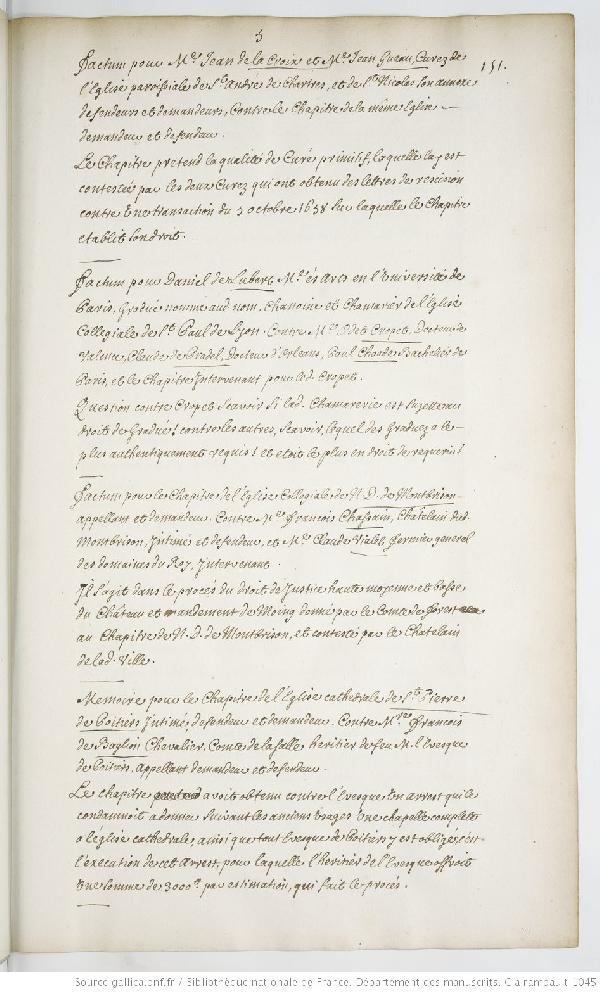 5
151.
factum pour Mre. Jean de la Croix et Mre. Jean Gueau, Curez de
l'Eglise parroissiale de St. André de Chartres, et de St. Nicolas son annexe
defendeurs et demandeurs, Contre le Chapitre de la même Eglise
demandeur et defendeur.
Le Chapitre pretend la qualité de Curé primitif, laquelle luy est
contestée par les deux Curez qui ont obtenu des lettres de rescision
contre une transaction du 3 octobre 1638 sur laquelle le Chapitre
etablit son droit.
factum pour Daniel de Lubert, Me. és Arts en l'Université de
Paris, Gradué nommé aud. nom, Chanoine et Chamarier de l'Eglise
Collegiale de St. Paul de Lyon. Contre Me. Odet Cropet, Docteur de
Valence, Claude de Pradel, Docteur d'Orleans, Paul Bachelier de
Paris, et le Chapitre Intervenant pour led. Cropet.
Question contre Cropet Scavoir si lad. Chamarerie est sujette au
droit de Gradué! contre les autres, Scavoir, lequel des Graduez a le
plus authentiquement requis! et etoit le plus en droit de requerir!
factum pour le Chapitre de l'Eglise Collegiale de N. D. de Montbrison
appellant et demandeur. Contre Me. François Chassain, Chatelain dud.
Montbrison, Intimé et defendeur, et Me. Claude Vialet fermier general
des domaines du Roy, Intervenant.
Il s'agit dans le procés du droit de Justice haute moyenne et basse
du Château et mandement de Moing donné par le Comte de forest
au Chapitre de N. D. de Montbrison, et contesté par le Chatelain
de lad. Ville.
Memoire pour le Chapitre de l'Eglise cathedrale de St. Pierre
de Poitiers Intimé, defendeur et demandeur. Contre Mre. françois
de Baglion Chevalier, Comte de la Salle heritier de feu M. l'Evesque
de Poitiers, appellant demandeur et defendeur.
Le chapitre avoit obtenu contre l'Evesque un arrest qui le
condamnoit a donner suivant les anciens usages une chapelle complete
a l'église cathedrale, ainsi que tout Evesque de Poitiers y est obligé. c'est
l'execution de cet Arrest, pour laquelle l'heritier de l'Evesque offroit
une somme de 3000tt. par estimation, qui fait le procés.
Source gallica.bnf.fr / Bibliothèque nationale de France. Département des manuscrits. Clairambault 1045